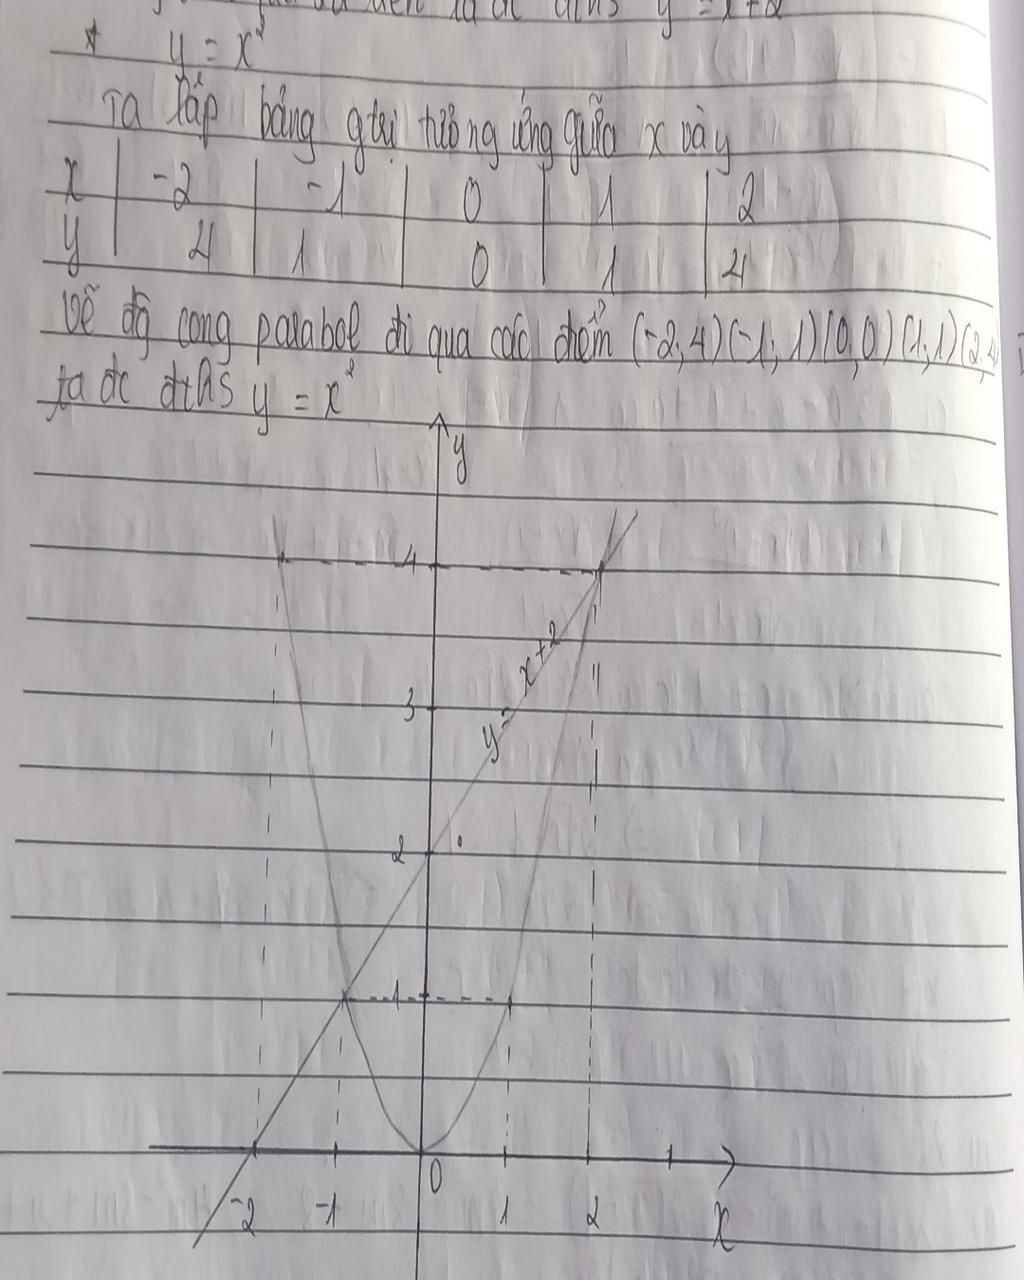 ta đc đths y = x+2
* y = x²
Ta lập bảng gtrị tương ứng giữa x và y
x | -2 | -1 | 0 | 1 | 2
y | 4 | 1 | 0 | 1 | 4
Vẽ đg cong parabol đi qua các điểm (-2;4)(-1;1)(0;0)(1;1)(2;4)
ta đc đths y = x²
y
4
y = x+2
3
2
1
0
-2 -1 1 2 x